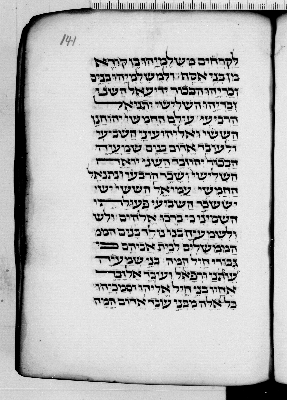 141
לקרחים משלמיהו בן קורא
מן בני אסף ולמשלמיהו בנים
זכריהו הבכור ידיעאל השני
זבדיהו השלישי יתניאל
הרביעי עילם החמישי יהוחנן
הששי ואליהועיני השביעי
ולעבד אדום בנים שמעיה
הבכור יהוזבד השני יואח
השלישי ושכר הרביעי ונתנאל
החמישי עמיאל הששי יש
יששכר השביעי פעולתי
השמיני כי ברכו אלהים ולש
ולשמעיה בנו נולד בנים הממ
הממשלים לבית אביהם כי
גבורי חיל המה בני שמעיה
עתני ורפאל ועובד אלזבד
אחיו בני חיל אליהו וסמכיהו
כל אלה מבני עובד אדום המה